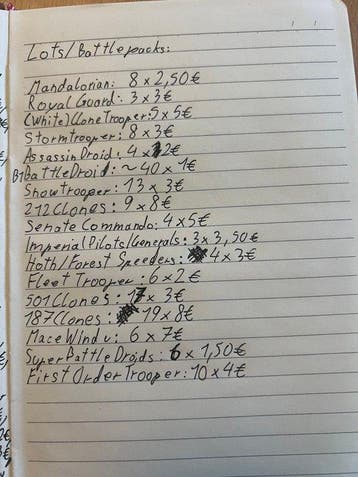 Lots/Battlepacks:
Mandalorian: 8 x 2,50€
Royal Guard: 3 x 3€
(White) Clone Trooper: 5 x 5€
Stormtrooper: 8 x 3€
Assassin Droid: 4 x 2€
B1 Battle Droid: ~40 x 1€
Snowtrooper: 13 x 3€
212 Clones: 9 x 8€
Senate Commando: 4 x 5€
Imperial Pilots/Generals: 3 x 3,50€
Hoth/Forest Speeders: 4 x 3€
Fleet Trooper: 6 x 2€
501 Clones: 17 x 3€
187 Clones: 19 x 8€
Mace Windu: 6 x 7€
Super Battle Droids: 6 x 1,50€
First Order Trooper: 10 x 4€